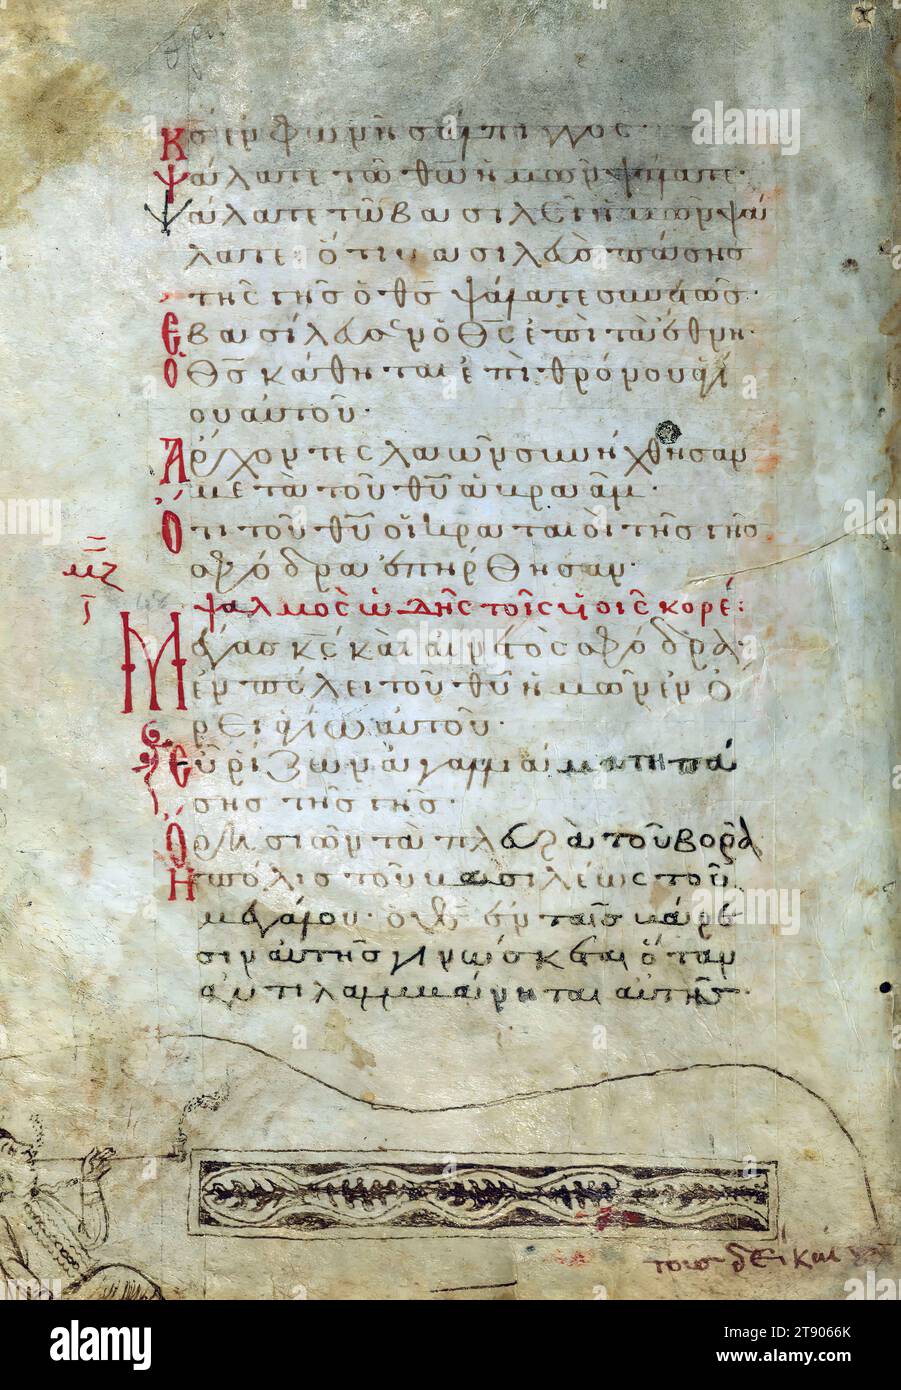 Κς ἐν φωνῆ σάλπιγγος·
Ψάλατε τῶ θῶ ἡμῶν ψάλατε·
Ψάλατε τῶ βασιλεῖ ἡμῶν ψά
λατε· ὅτι βασιλεὺς πάσης
τῆς γῆς ὁ θς ψάλατε συνετῶς·
Ἐβασίλευσεν ὁ θς ἐπὶ τὰ ἔθνη·
Ὁ θς κάθηται ἐπὶ θρόνου ἁγί
ου αὐτοῦ·
Ἄρχοντες λαῶν συνήχθησαν
μετὰ τοῦ θυ ἀβραάμ·
Ὅτι τοῦ θυ οἱ κραταιοὶ τῆς γῆς
σφόδρα ἐπήρθησαν·
μζ
ψαλμὸς ὠδῆς τοῖς υἱοῖς κορέ:
Μέγας κς καὶ αἰνετὸς σφόδρα·
ἐν πόλει τοῦ θυ ἡμῶν ἐν ὄ
ρει ἁγίω αὐτοῦ·
Εὐρίζων ἀγαλλιάματι πά
σης τῆς γῆς·
Ὄρη σιὼν τὰ πλευρὰ τοῦ βορρᾶ
Ἡ πόλις τοῦ βασιλέως τοῦ
μεγάλου· ὁ θς ἐν ταῖς βάρε
σιν αὐτῆς γινώσκεται ὅταν
ἀντιλαμβάνηται αὐτῆς·
alamy
Image ID: 2T9066K
www.alamy.com